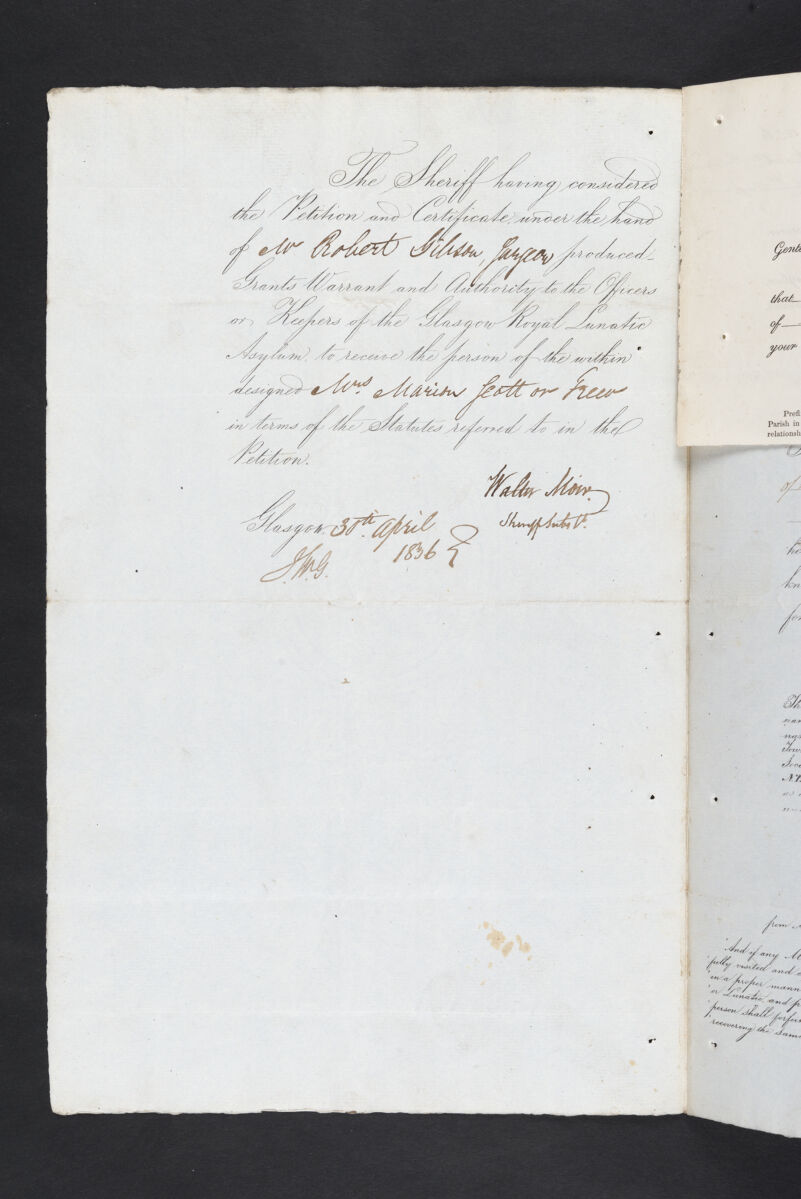 The Sheriff having considered
the Petition and Certificate under the hand
of Mr Robert Gibson, Surgeon produced
Grants Warrant and Authority to the Officers
or Keepers of the Glasgow Royal Lunatic
Asylum to receive the person of the within
designed Mrs. Marion Scott or Freew
in terms of the Statutes referred to in the
Petition.
Walter Moir.
Sheriff Subst.
Glasgow 30th April
1836
Gent
that
of
your
Prefi
Parish in
relationsh
of
from
And if any
fully visited and
in a proper mann
or Lunatic and
person shall forfei
recovering the same